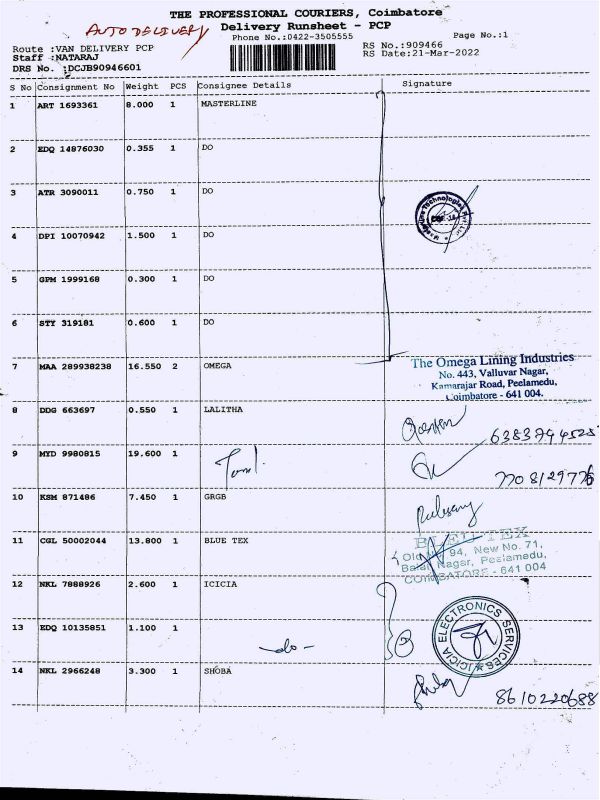 THE PROFESSIONAL COURIERS, Coimbatore
AUTO DELIVERY
Delivery Runsheet - PCP
Phone No.:0422-3505555
Page No.:1
Route :VAN DELIVERY PCP
RS No.:909466
Staff :NATARAJ
RS Date:21-Mar-2022
DRS No. :DCJB90946601
S No Consignment No Weight PCS Consignee Details Signature
1 ART 1693361 8.000 1 MASTERLINE
2 EDQ 14876030 0.355 1 DO
3 ATR 3090011 0.750 1 DO
4 DPI 10070942 1.500 1 DO
5 GPM 1999168 0.300 1 DO
6 STY 319181 0.600 1 DO
7 MAA 289938238 16.550 2 OMEGA
The Omega Lining Industries
No. 443, Valluvar Nagar,
Kamarajar Road, Peelamedu,
Coimbatore - 641 004.
8 DDG 663697 0.550 1 LALITHA
9 MYD 9980815 19.600 1
10 KSM 871486 7.450 1 GRGB
11 CGL 50002044 13.800 1 BLUE TEX
94, New No. 71,
Nagar, Peelamedu,
COIMBATORE - 641 004
12 NKL 7888926 2.600 1 ICICIA
13 EDQ 10135851 1.100 1 -do-
ICICIA ELECTRONICS SERVICES
14 NKL 2966248 3.300 1 SHOBA
8610220688